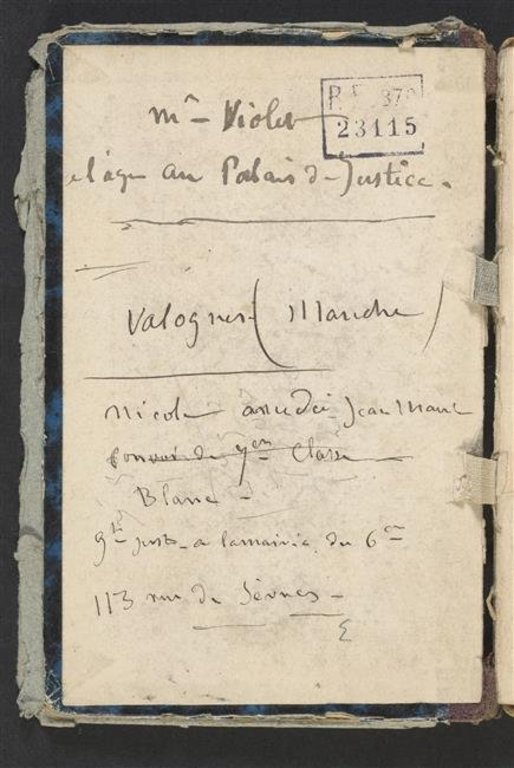 R.F. 370
23115
Mr Violet
au Palais de Justice.
Valognes (Manche)
Nicole amédée Jean Marie
Convoi de 7em Classe
Blanc
9h justs a la mairie du 6em
113 rue de Sèvres